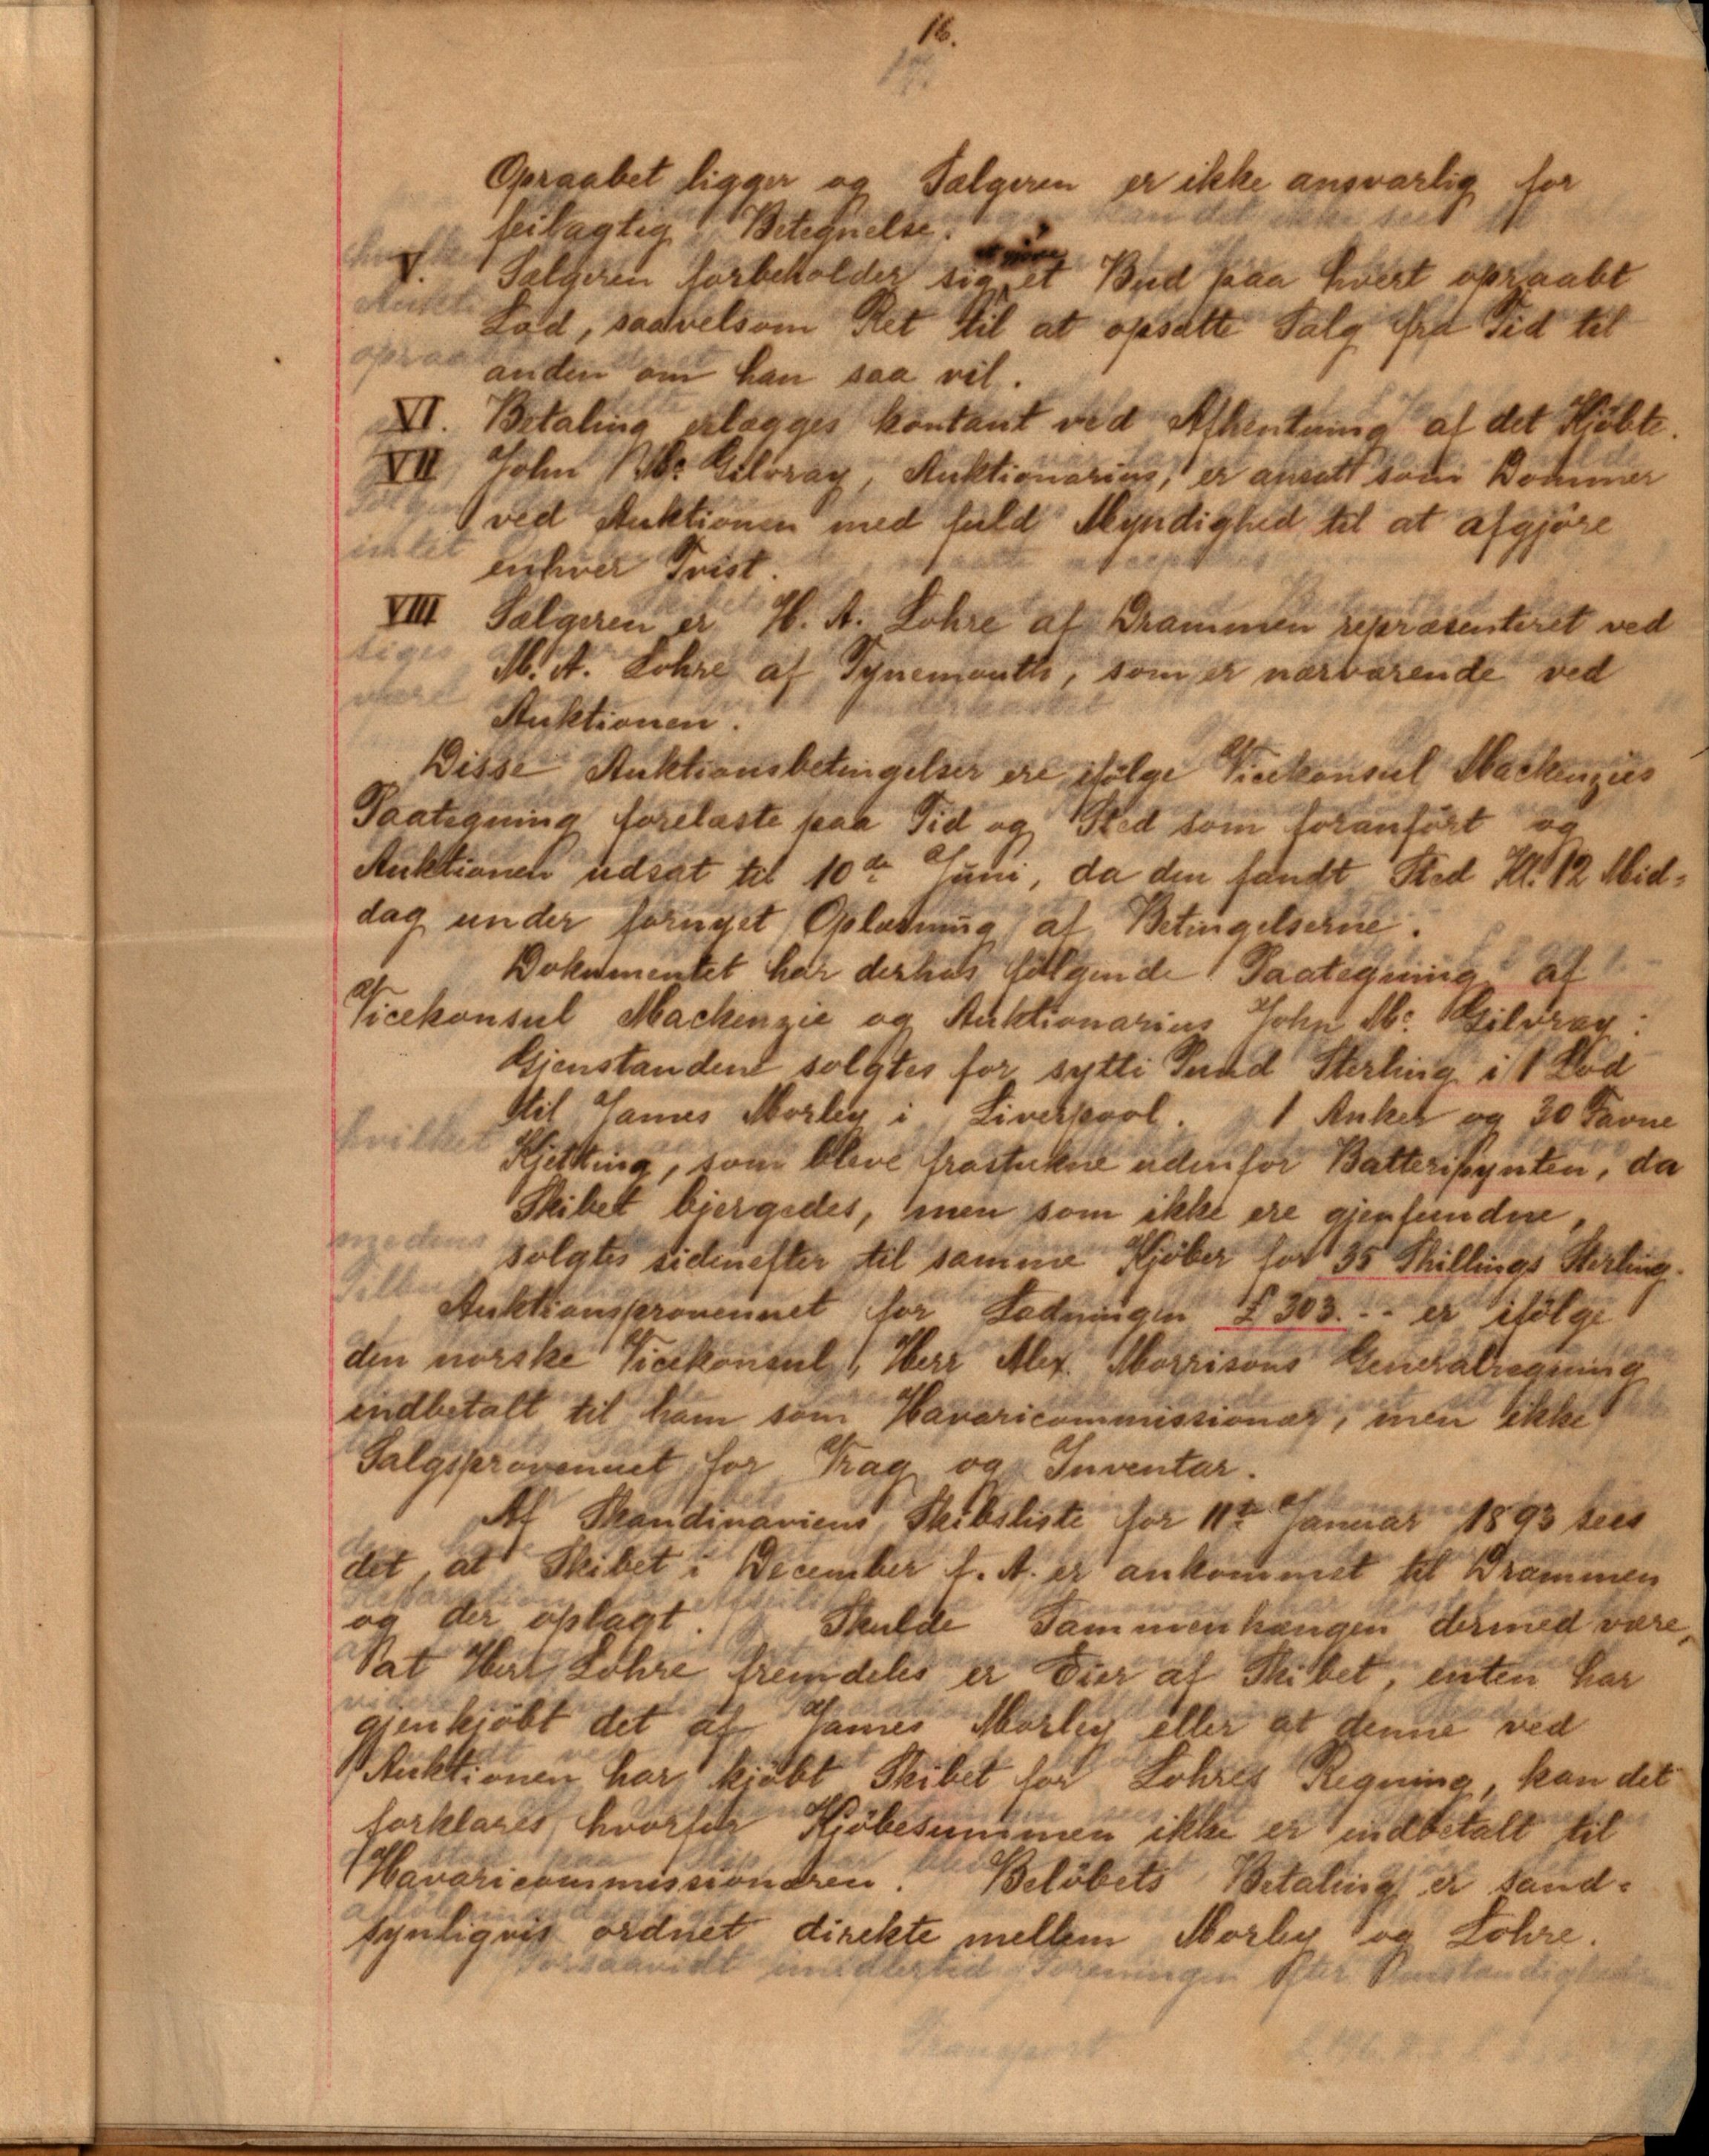 16.
Opraabet ligger og Sælgeren er ikke ansvarlig for
feilagtig Betegnelse.
V. Sælgeren forbeholder sig at gjøre et Bud paa hvert opraabt
Lod, saavelsom Ret til at opsætte Salg fra Tid til
anden om han saa vil.
VI. Betaling erlægges kontant ved Afhentning af det Kjöbte.
VII John Mc. Gilvray, Auktionarius, er ansatt som Dommer
ved Auktionen med fuld Myndighed til at afgjöre
enhver Tvist.
VIII Sælgeren er H. A. Lohre af Drammen repræsenteret ved
M. A. Lohre af Tynemouth, som er nærværende ved
Auktionen.
Disse Auktionsbetingelser ere ifölge Vicekonsul Mackenzies
Paategning forelæste paa Tid og Sted som foranfört og
Auktionen udsat til 10de Juni, da den fandt Sted Kl. 12 Mid=
dag under fornyet Oplæsning af Betingelserne.
Dokumentet har derhos fölgende Paategning af
Vicekonsul Mackenzie og Auktionarius John Mc. Gilvray:
Gjenstandene solgtes for sytti Pund Sterling i 1 Lod
til James Morley i Liverpool. 1 Anker og 30 Favne
Kjetting, som bleve frastukne udenfor Batteripynten, da
Skibet bjergedes, men som ikke ere gjenfundne,
solgtes sidenefter til samme Kjöber for 35 Skillings Sterling.
Auktionsprovenuet for Ladningen £ 303. - - er ifölge
den norske Vicekonsul, Herr Alex. Morrisons Generalregning
indbetalt til ham som Havaricommissionær, men ikke
Salgsprovenuet for Vrag og Inventar.
Af Skandinaviens Skibsliste for 11te Januar 1893 sees
det, at Skibet i December f. A. er ankommet til Drammen
og der oplagt. Skulde Sammenhængen dermed være,
at Herr Lohre fremdeles er Eier af Skibet, enten har
gjenkjöbt det af James Morley eller at denne ved
Auktionen har kjöbt Skibet for Lohres Regning, kan det
forklares hvorfor Kjöbesummen ikke er indbetalt til
Havaricommissionæren. Belöbets Betaling er sand=
synligvis ordnet direkte mellem Morley og Lohre.